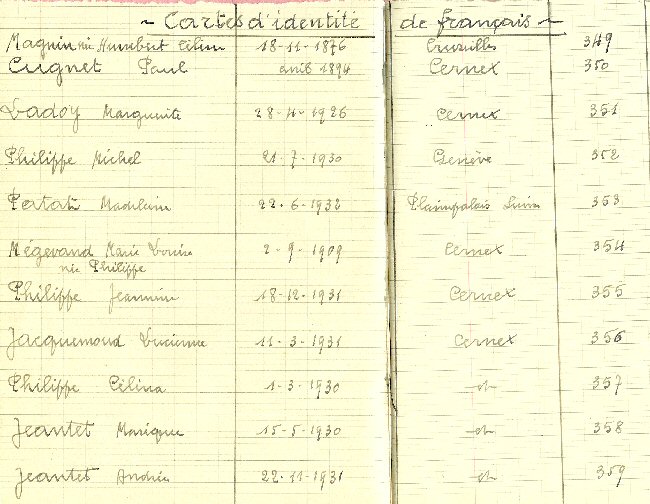 ~ Cartes d'identité de français ~
Maquin née Humbert Célina 18-11-1876 Cruseilles 349
Cugnet Paul 1894 Cernex 350
Ladoy Marguerite 28-4-1926 Cernex 351
Philippe Michel 21-7-1930 Genève 352
Madeleine 22-6-1932 Plainpalais Suisse 353
Mégevand Marie Louise 2-9-1909 Cernex 354
née Philippe
Philippe Jeannine 18-12-1931 Cernex 355
Jacquemoud Lucienne 11-3-1931 Cernex 356
Philippe Célina 1-3-1930 -d°- 357
Jeantet Monique 15-5-1930 -d°- 358
Jeantet Andrée 22-11-1931 -d°- 359